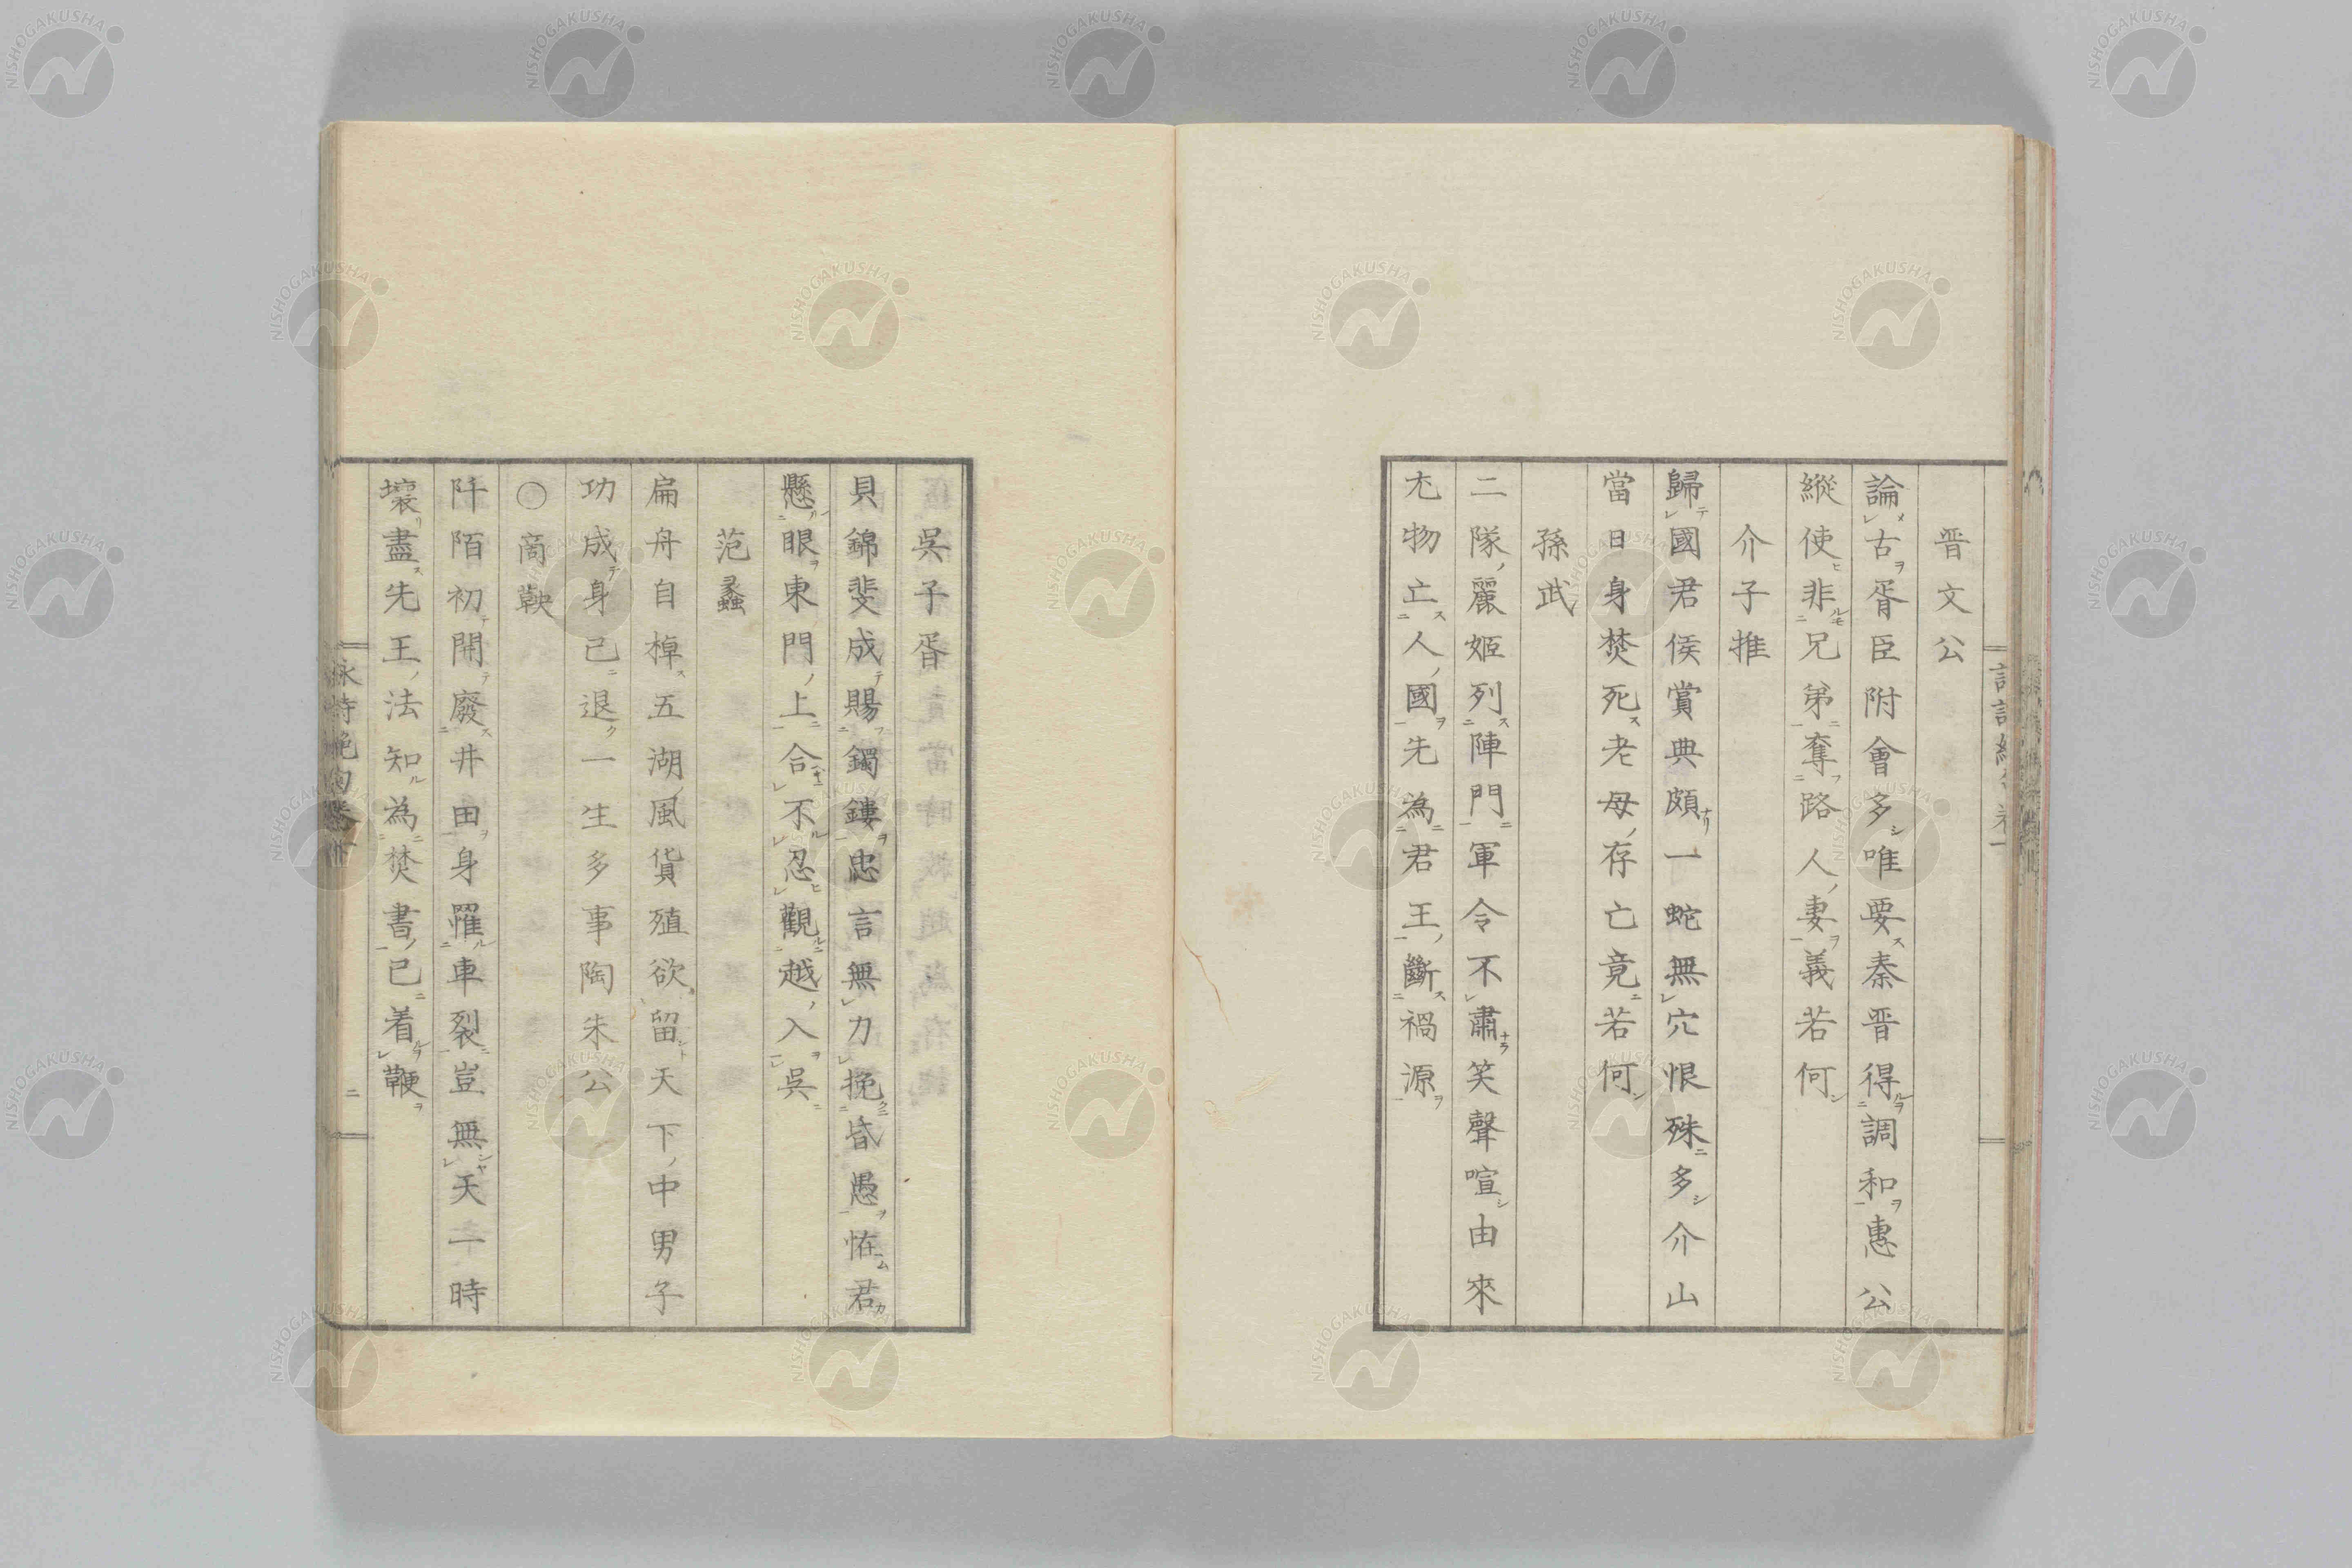 晋文公
論古胥臣附會多唯要秦晋得調和惠公
縱使非兄弟奪路人妻義若何
介子推
歸國君侯賞典頗一蛇無穴恨殊多介山
當日身焚死老母存亡竟若何
孫武
二隊麗姬列陣門軍令不肅笑聲喧由來
尤物亡人國先為君王斷禍源
吳子胥
貝錦斐成賜鐲鏤忠言無力挽昏愚恠君
懸眼東門上合不忍觀越入吳
范蠡
扁舟自棹五湖風貨殖欲留天下中男子
功成身已退一生多事陶朱公
○商鞅
阡陌初開廢井田身罹車裂豈無天一時
壞盡先王法知為焚書已着鞭
二
NISHOGAKUSHA